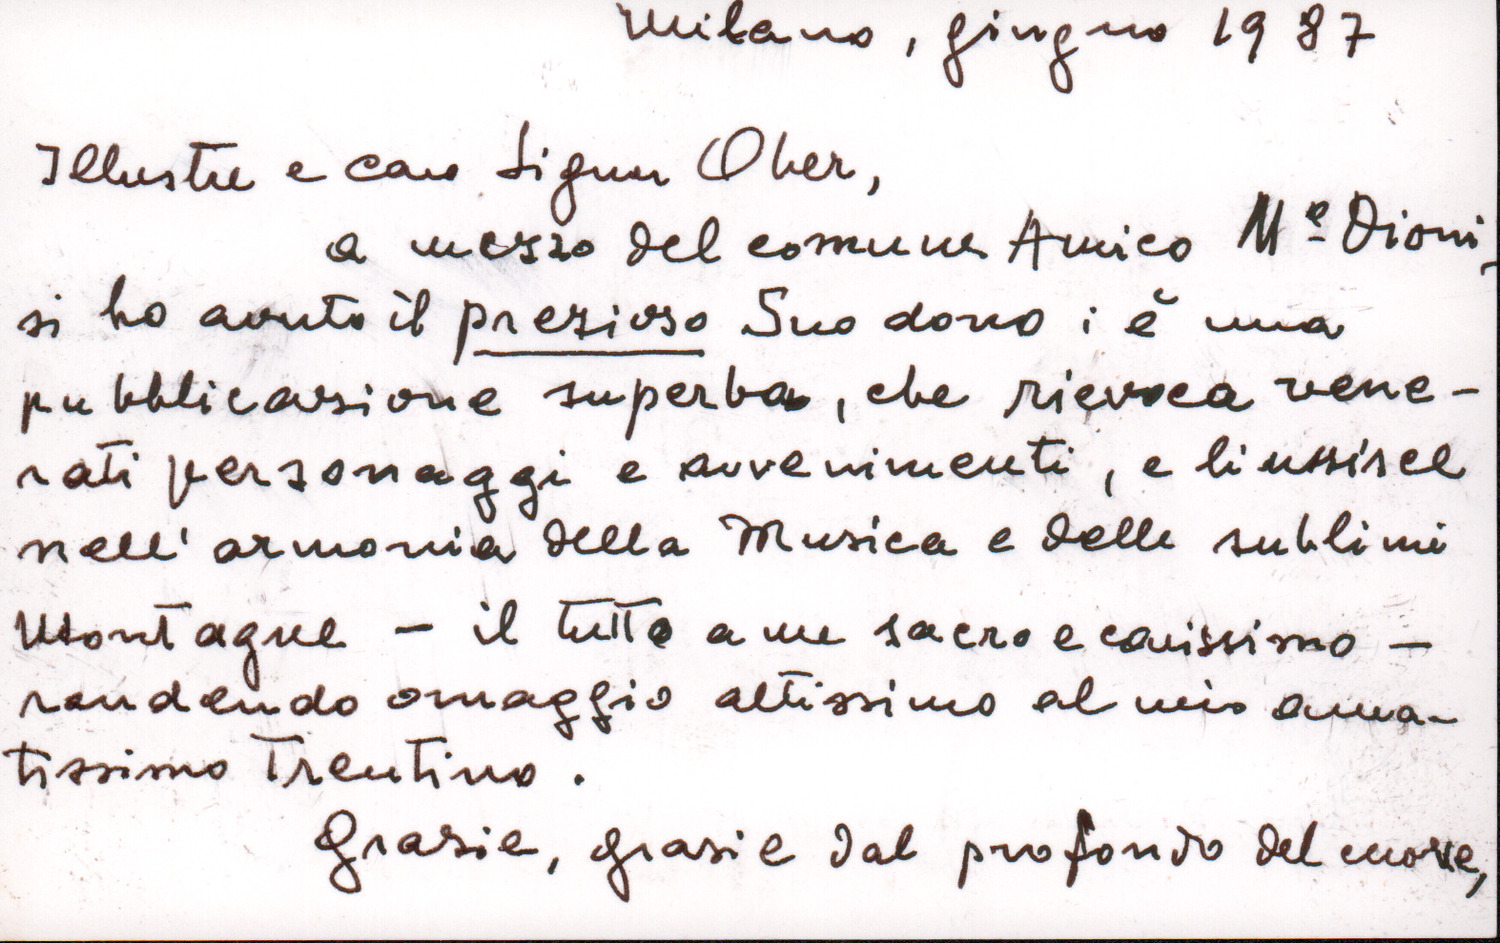 Milano, giugno 1987
Illustre e caro Signor Ober,
a mezzo del comune Amico Mº Dioni-
si ho avuto il prezioso Suo dono; è una
pubblicazione superba, che rievoca vene-
rati personaggi e avvenimenti, e li unisce
nell'armonia della Musica e delle sublimi
Montagne – il tutto a me sacro e carissimo –
rendendo omaggio altissimo al mio ama-
tissimo Trentino.
Grazie, grazie dal profondo del cuore,